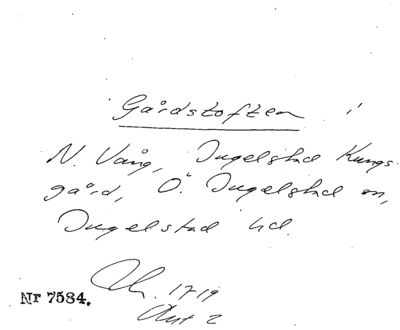 Gårdstoften i
N. Vång, Ingelstad Kungs-
gård, Ö. Ingelstad sn,
Ingelstad hd.
1719
Akt 2
Nr 7584.